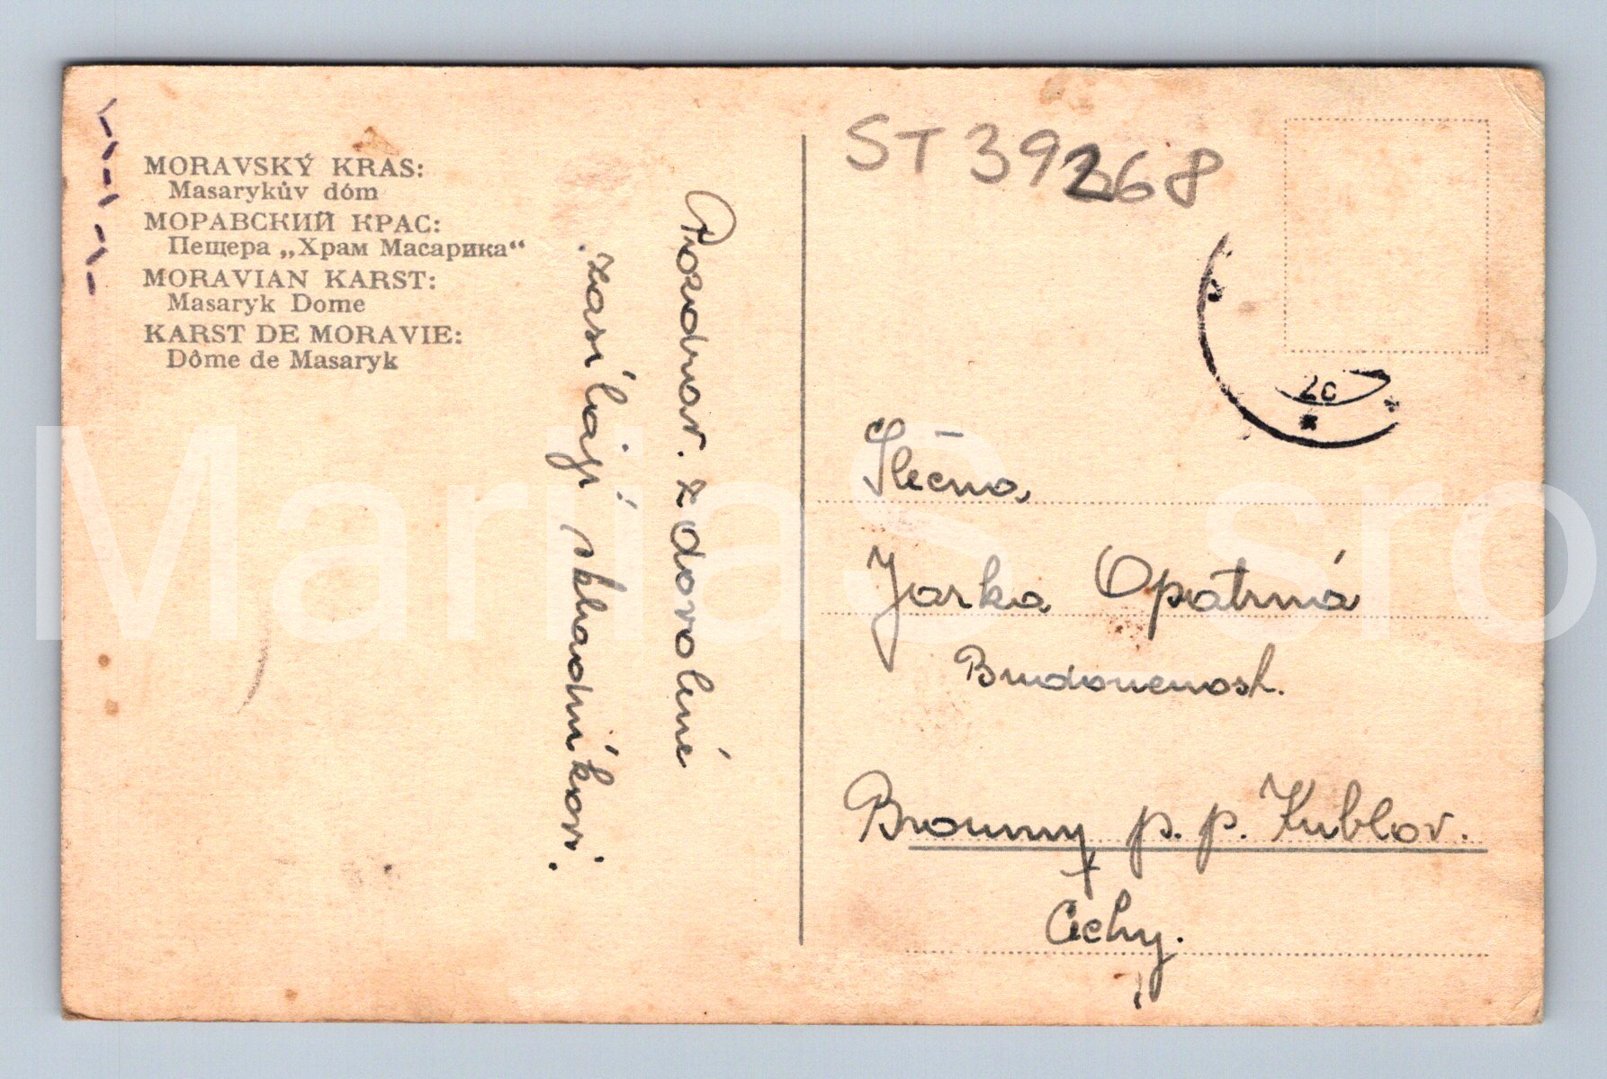 MORAVSKÝ KRAS:
Masarykův dóm
МОРАВСКИЙ КРАС:
Пещера „Храм Масарика“
MORAVIAN KARST:
Masaryk Dome
KARST DE MORAVIE:
Dôme de Masaryk
Pozdrav. z dovolené
zasílají skladníkovi.
ST 39268
20
Slečna,
Jarka Opatrná
p. p. Kublov.
Čechy.
Mariias sro